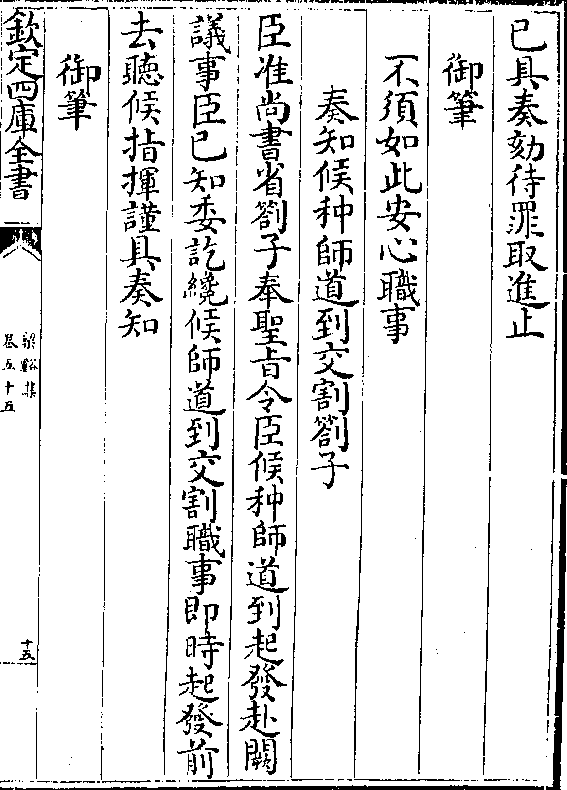 已具奏劾待罪取進止
御筆
不須如此安心職事
奏知候种師道到交割劄子
臣准尚書省劄子奉聖旨令臣候种師道到起發赴闕
議事臣已知委訖纔候師道到交割職事即時起發前
去聽候指揮謹具奏知
御筆
欽定四庫全書
梁谿集
卷五十五
十五